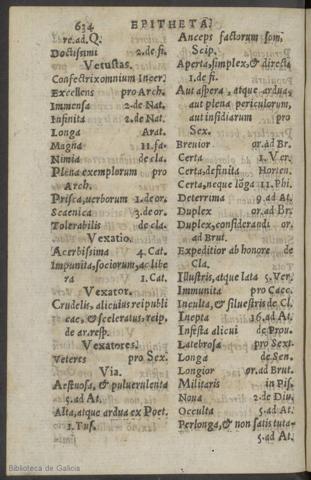 634 EPITHETA.
re.ad.Q.
Doctissimi 2.de fi.
Vetustas.
Confectrix omnium Incer.
Excellens pro Arch.
Immensa 2.de Nat.
Infinita 2.de Nat.
Longa Arat.
Magna 11.fa.
Nimia de cla.
Plena exemplorum pro
Arch.
Prisca, uerborum 1.de or.
Scaenica 3.de or.
Tolerabilis de cla.
Vexatio.
Acerbissima 4.Cat.
Impunita, sociorum, ac libe
ra 1.Cat.
Vexator.
Crudelis, alicuius reipubli
cae, & sceleratus, reip.
de ar.resp.
Vexatores.
Veteres pro Sex.
Via.
Aestuosa, & puluerulenta
5.ad At.
Alta, atque ardua ex Poet.
1.Tus.
Anceps factorum som.
Scip.
Aperta, simplex, & directa
1.de fi.
Aut aspera, atque ardua,
aut plena periculorum,
aut insidiarum pro
Sex.
Breuior or.ad Br.
Certa 1.Ver.
Certa, definita Horten.
Certa, neque lōga 11.Phi.
Deterrima 9.ad At.
Duplex or.ad Br.
Duplex, considerandi or.
ad Brut.
Expeditior ad honore de
Cla.
Illustris, atque lata 5.Ver.
Immunita pro Caec.
Inculta, & siluestris de Cl.
Inepta 16.ad At.
Infesta alicui de Prou.
Latebrosa pro Sext.
Longa de Sen.
Longior or.ad Brut.
Militaris in Pis.
Noua 2.de Diu.
Occulta 5.ad At.
Perlonga, & non satis tuta
5.ad At.
Biblioteca de Galicia